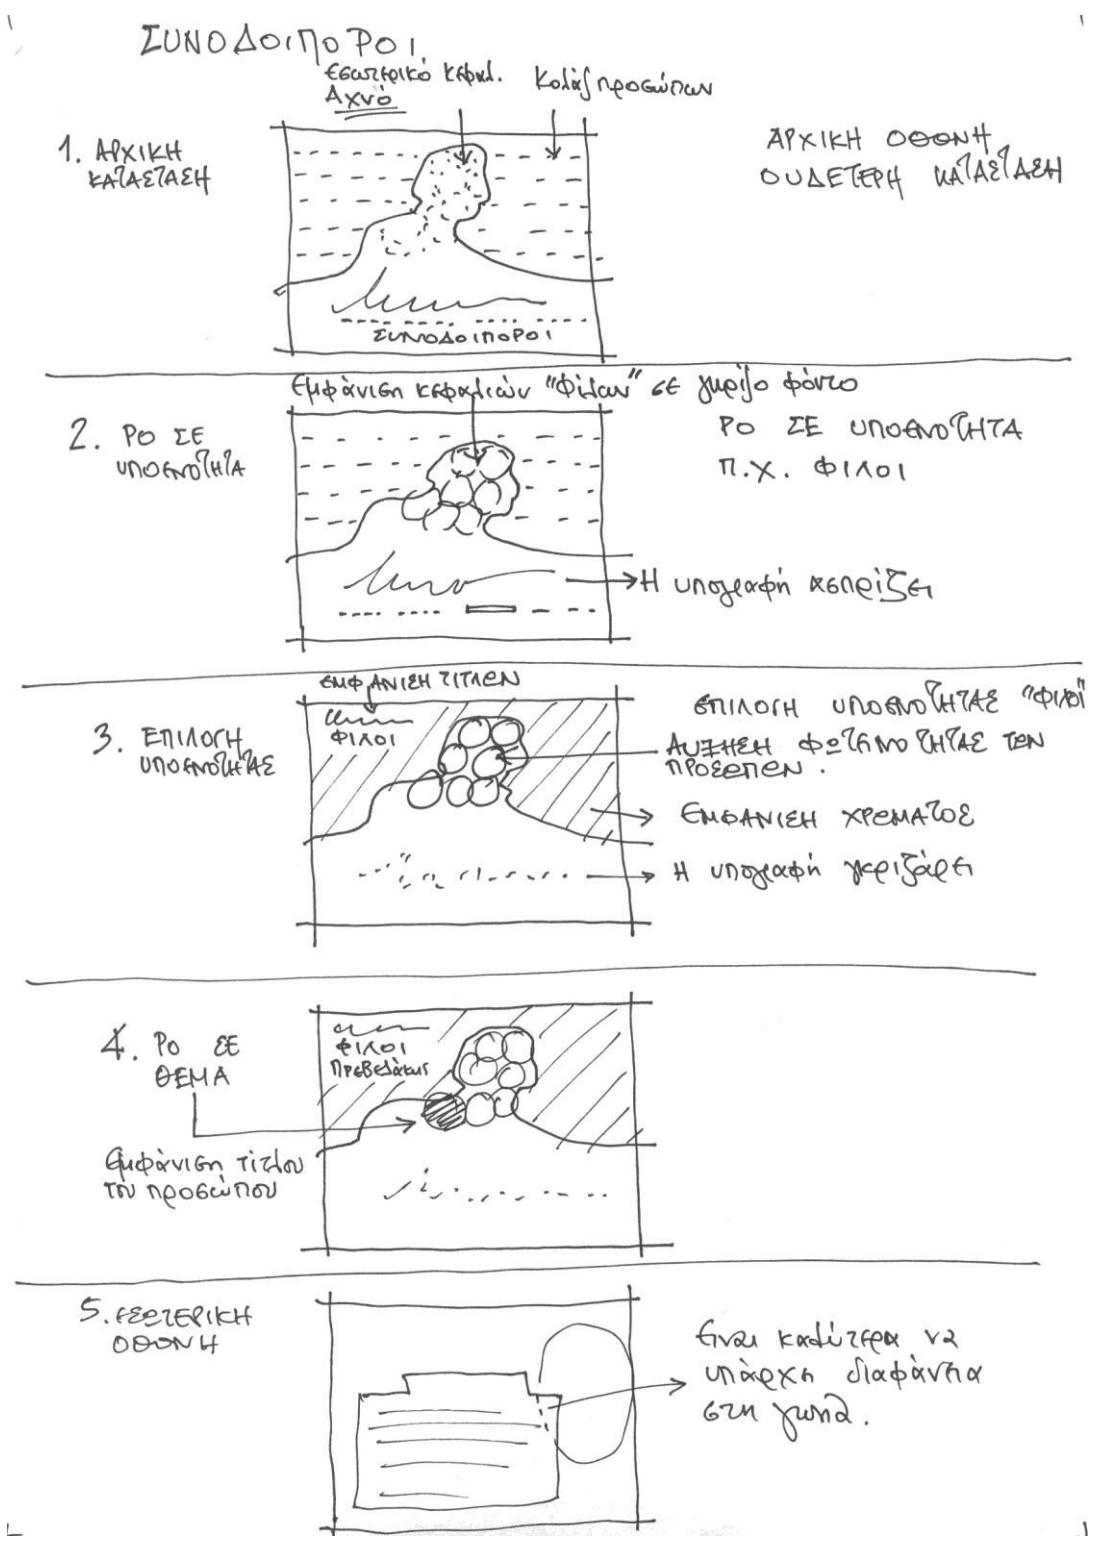 ΣΥΝΟΔΟΙΠΟΡΟΙ
Εσωτερικό κεφαλ.
Αχνό
Κολάζ προσώπων
1. ΑΡΧΙΚΗ
ΚΑΤΑΣΤΑΣΗ
ΑΡΧΙΚΗ ΟΘΟΝΗ
ΟΥΔΕΤΕΡΗ ΚΑΤΑΣΤΑΣΗ
ΣΥΝΟΔΟΙΠΟΡΟΙ
Εμφάνιση κεφαλιών "Φίλων" σε γκρίζο φόντο
2. ΡΟ ΣΕ
ΥΠΟΕΝΟΤΗΤΑ
ΡΟ ΣΕ ΥΠΟΕΝΟΤΗΤΑ
Π.Χ. ΦΙΛΟΙ
Η υπογραφή ασπρίζει
ΕΜΦΑΝΙΣΗ ΤΙΤΛΩΝ
3. ΕΠΙΛΟΓΗ
ΥΠΟΕΝΟΤΗΤΑΣ
ΦΙΛΟΙ
ΕΠΙΛΟΓΗ ΥΠΟΕΝΟΤΗΤΑΣ "ΦΙΛΟΙ"
ΑΥΞΗΣΗ ΦΩΤΕΙΝΟΤΗΤΑΣ ΤΩΝ
ΠΡΟΣΩΠΩΝ.
ΕΜΦΑΝΙΣΗ ΧΡΩΜΑΤΟΣ
Η υπογραφή γκριζάρει
4. ΡΟ ΣΕ
ΘΕΜΑ
ΦΙΛΟΙ
Πρεβελάκης
Εμφάνιση τίτλου
του προσώπου
5. ΕΣΩΤΕΡΙΚΗ
ΟΘΟΝΗ
Είναι καλύτερα να
υπάρχει διαφάνεια
στη γωνία.